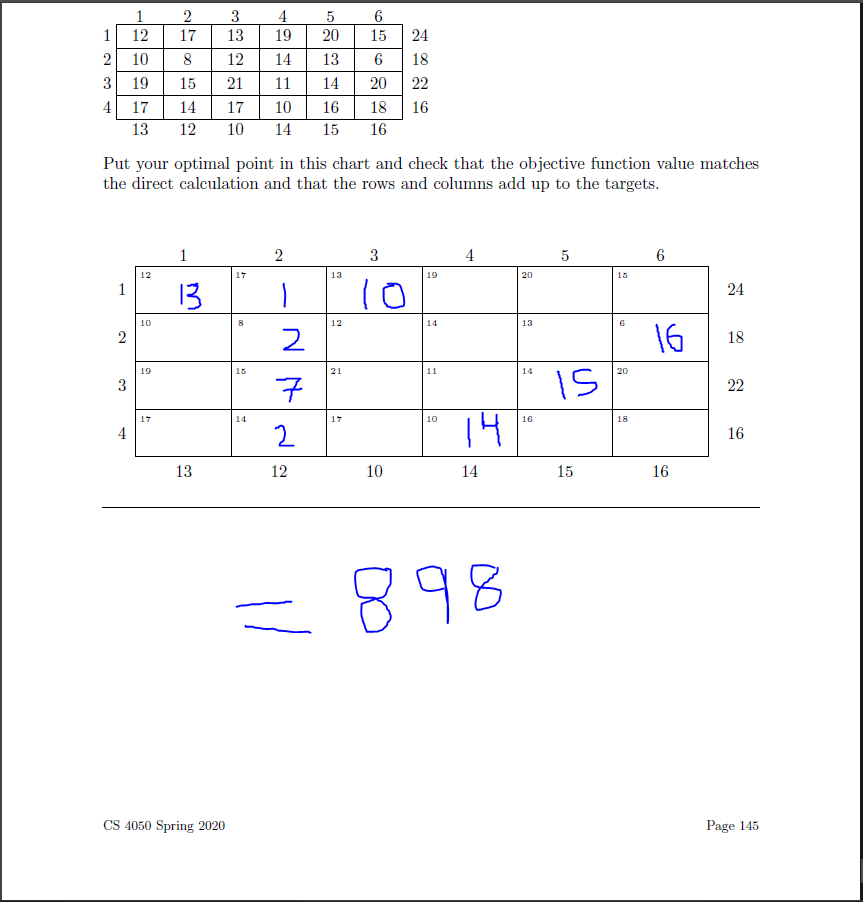 1 2 3 4 5 6
1 12 17 13 19 20 15 24
2 10 8 12 14 13 6 18
3 19 15 21 11 14 20 22
4 17 14 17 10 16 18 16
13 12 10 14 15 16
Put your optimal point in this chart and check that the objective function value matches
the direct calculation and that the rows and columns add up to the targets.
1 2 3 4 5 6
12 17 13 19 20 15
1 13 1 10 24
10 8 12 14 13 6
2 2 16 18
19 15 21 11 14 20
3 7 15 22
17 14 17 10 16 18
4 2 14 16
13 12 10 14 15 16
= 898
CS 4050 Spring 2020 Page 145